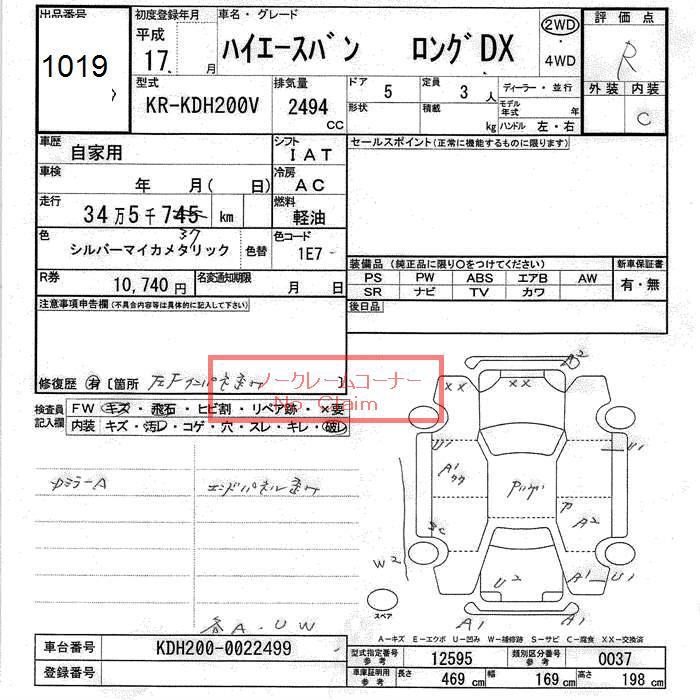 出品番号 初度登録年月 車名・グレード 評価点
1019 平成 17 月 ハイエースバン ロングDX 2WD ・ 4WD R
外装 内装
C
型式 排気量 ドア 定員 ディーラー・並行
KR-KDH200V 2494 CC 5 3人
形状 積載 kg モデル年式 年
ハンドル 左・右
車歴 自家用 シフト IAT セールスポイント(正常に機能するものに限ります)
車検 年 月( 日) 冷房 AC
走行 34万5千745 km 燃料 軽油
37
色 シルバーマイカメタリック 色替 色コード 1E7
装備品(純正品に限り〇をつけてください) 新車保証書
PS PW ABS エアB AW 有・無
SR ナビ TV カワ
R券 10,740円 名変通知期限 月 日
後日品
注意事項申告欄(不具合内容等は具体的に記入して下さい)
修復歴 有 〔箇所 〕
ノークレームコーナー
No Claim
検査員記入欄 FW キズ・飛石・ヒビ割・リペア跡・×要
内装 キズ・汚レ・コゲ・穴・スレ・キレ・破レ
カミラーA
A2
XX XX
U1 U1
A1
A2
W2
U2 A1 U1
スペア
A1 A1
各A・UW
A-キズ E-エクボ U-凹み W-補修跡 S-サビ C-腐食 XX-交換済
車台番号 KDH200-0022499
登録番号
型式指定番号 参考 12595 類別区分番号 参考 0037
車庫証明用 参考 長さ 469 cm 幅 169 cm 高さ 198 cm